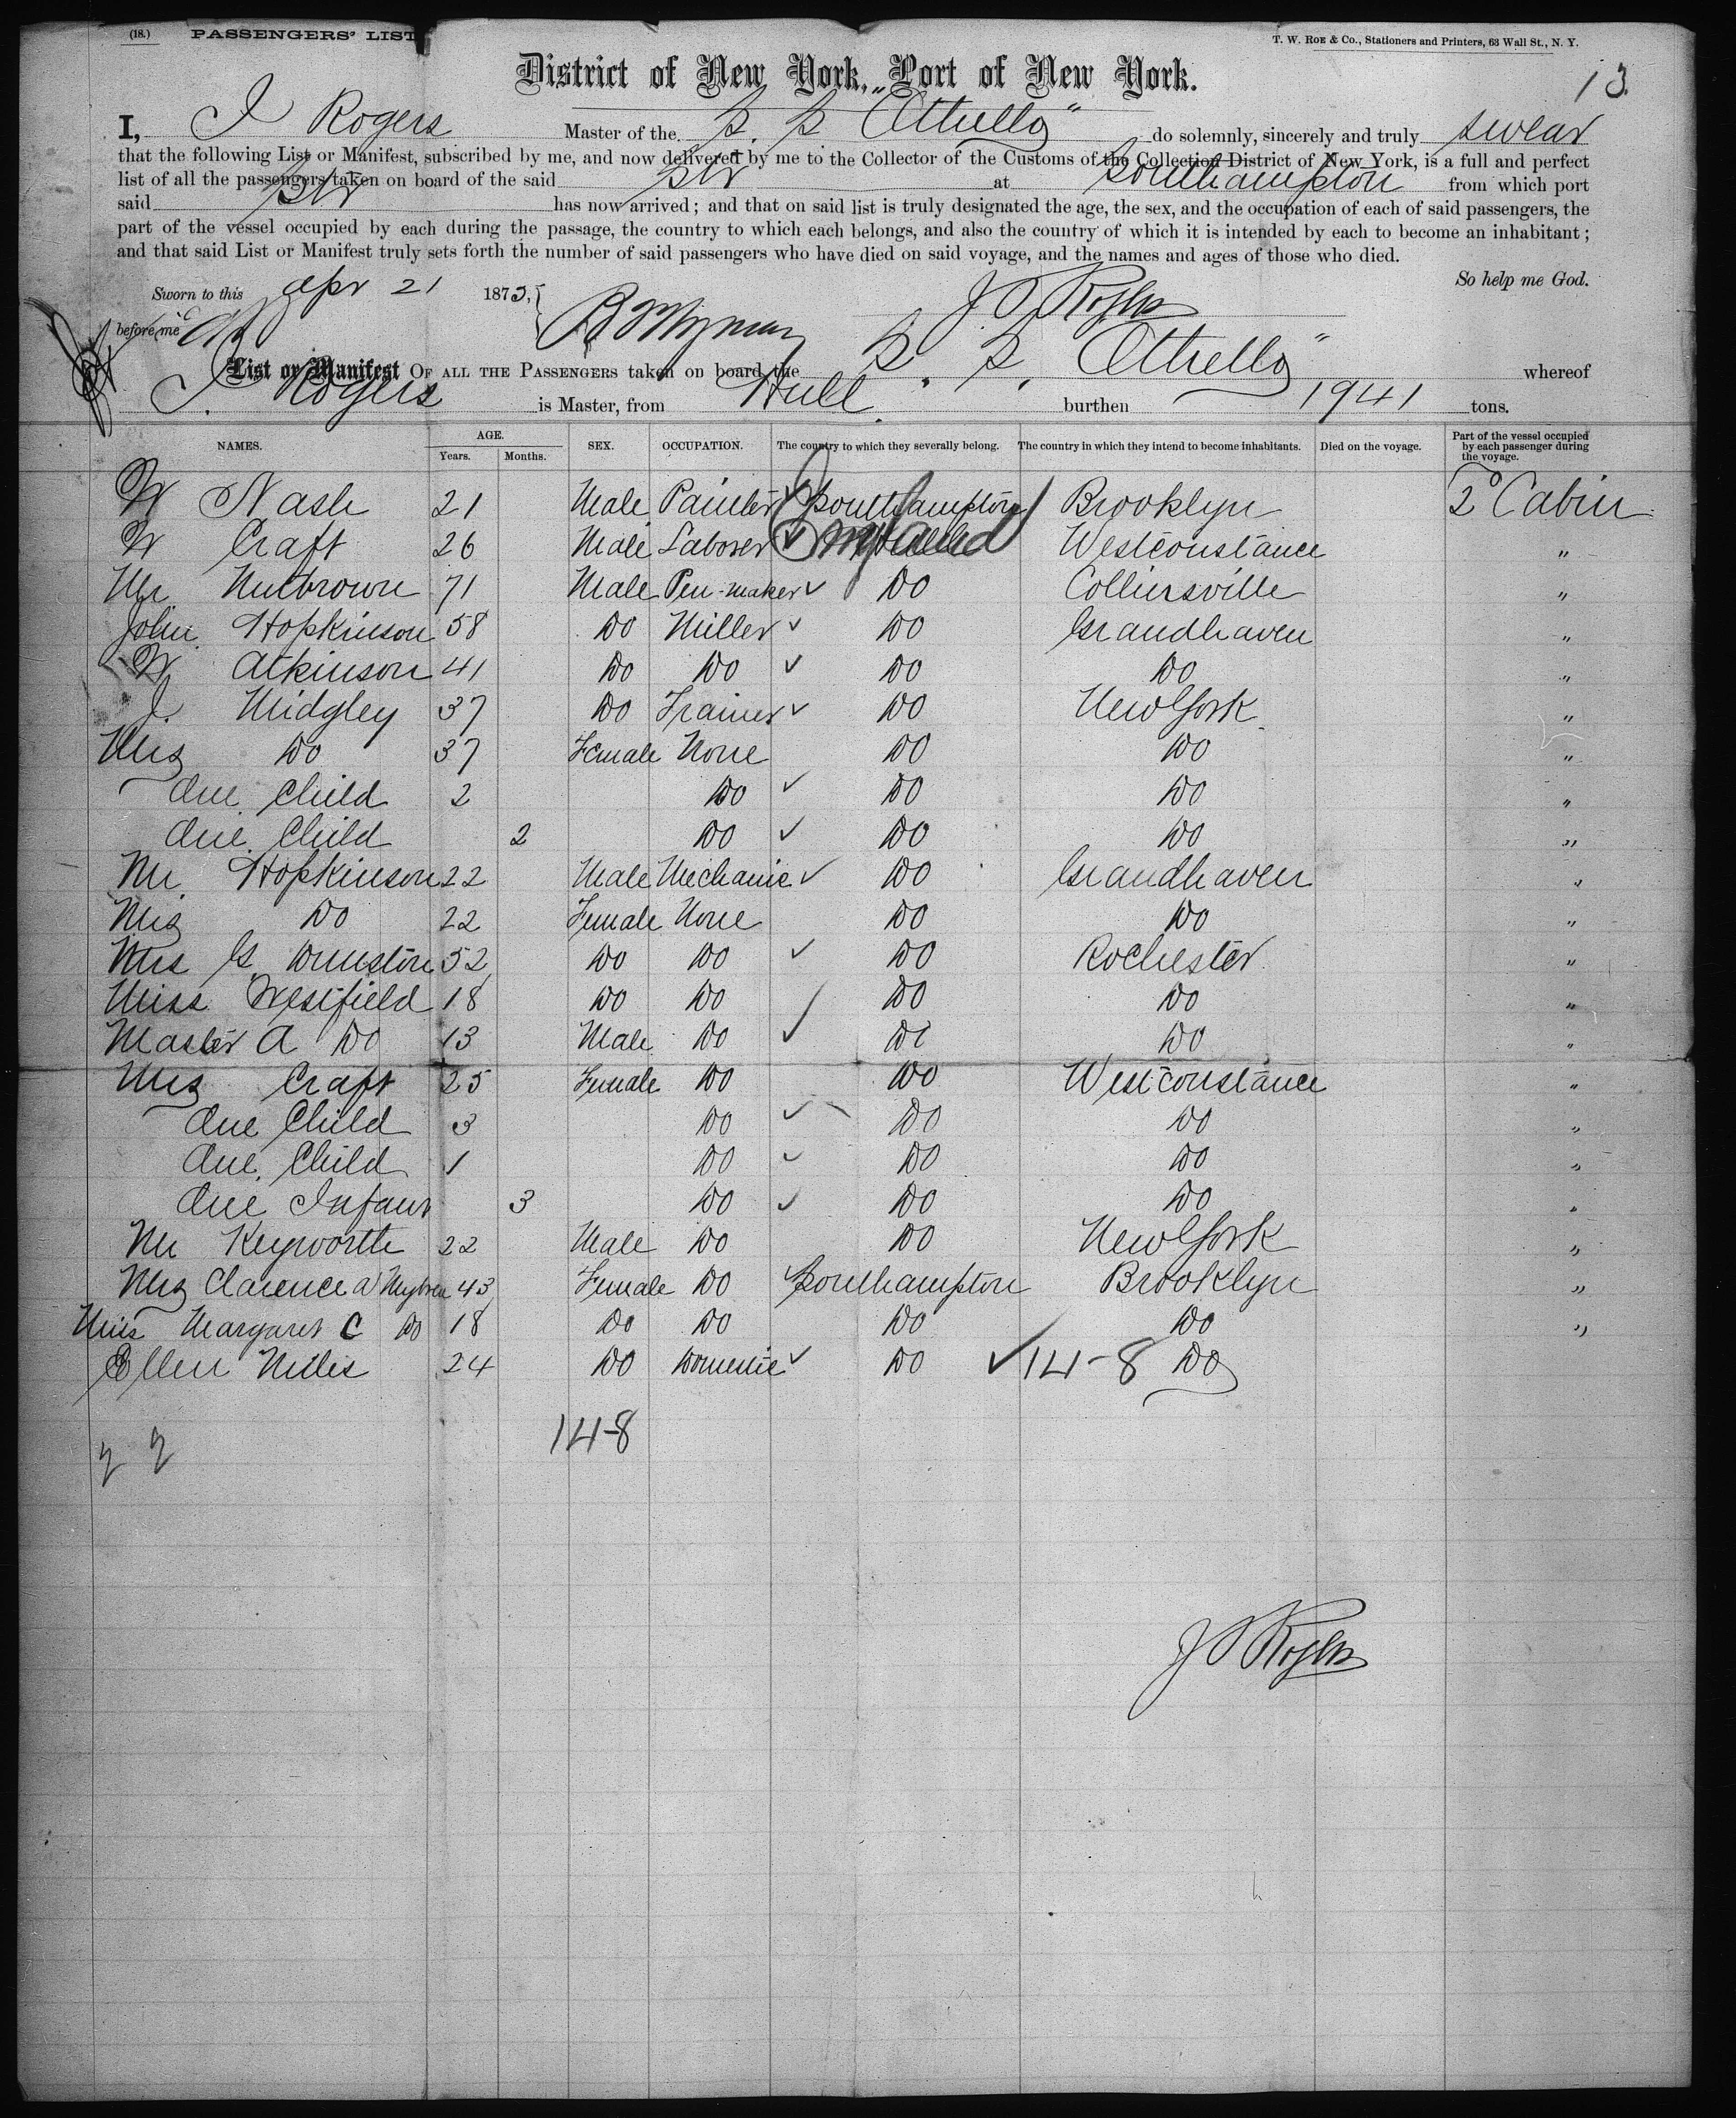 (18.) PASSENGERS' LIST
T. W. ROE & CO., Stationers and Printers, 63 Wall St., N. Y.
13.
District of New York, Port of New York.
I, J Rogers Master of the S. S "Othello" do solemnly, sincerely and truly swear
that the following List or Manifest, subscribed by me, and now delivered by me to the Collector of the Customs of the Collection District of New York, is a full and perfect
list of all the passengers taken on board of the said Str at Southampton from which port
said Str has now arrived; and that on said list is truly designated the age, the sex, and the occupation of each of said passengers, the
part of the vessel occupied by each during the passage, the country to which each belongs, and also the country of which it is intended by each to become an inhabitant;
and that said List or Manifest truly sets forth the number of said passengers who have died on said voyage, and the names and ages of those who died.
So help me God.
Sworn to this Apr 21 1873,
before me
List or Manifest OF ALL THE PASSENGERS taken on board the S. S. Othello" whereof
J. Rogers is Master, from Hull. burthen 1941 tons.
NAMES. AGE. Years. Months. SEX. OCCUPATION. The country to which they severally belong. The country in which they intend to become inhabitants. Died on the voyage. Part of the vessel occupied by each passenger during the voyage.
W Nash 21 Male Painter ✓ Southampton Brooklyn 2° Cabin
W Craft 26 Male Laborer ✓ England Westconstance "
Mr Nutbrown 71 Male Pen-maker ✓ Do Collinsville "
John Hopkinson 58 Do Miller ✓ Do Grandhaven "
W Atkinson 41 Do Do ✓ Do Do "
J. Midgley 37 Do Framer ✓ Do New York "
Mrs Do 37 Female None Do Do "
One Child 2 Do ✓ Do Do "
One Child 2 Do ✓ Do Do "
Mr Hopkinson 22 Male Mechanic ✓ Do Grandhaven "
Mrs Do 22 Female None Do Do "
Mrs G Dunston 52 Do Do ✓ Do Rochester "
Miss Westfield 18 Do Do ✓ Do Do "
Master A Do 13 Male Do ✓ Do Do "
Mrs Craft 25 Female Do Do Westconstance "
One Child 3 Do ✓ Do Do "
One Child 1 Do ✓ Do Do "
One Infant 3 Do ✓ Do Do "
Mr Keyworth 22 Male Do Do New York "
Mrs Clarence A 43 Female Do Southampton Brooklyn "
Miss Margaret C Do 18 Do Do Do Do "
Ellen Niles 24 Do Domestic ✓ Do ✓ 14-8 Do
14-8